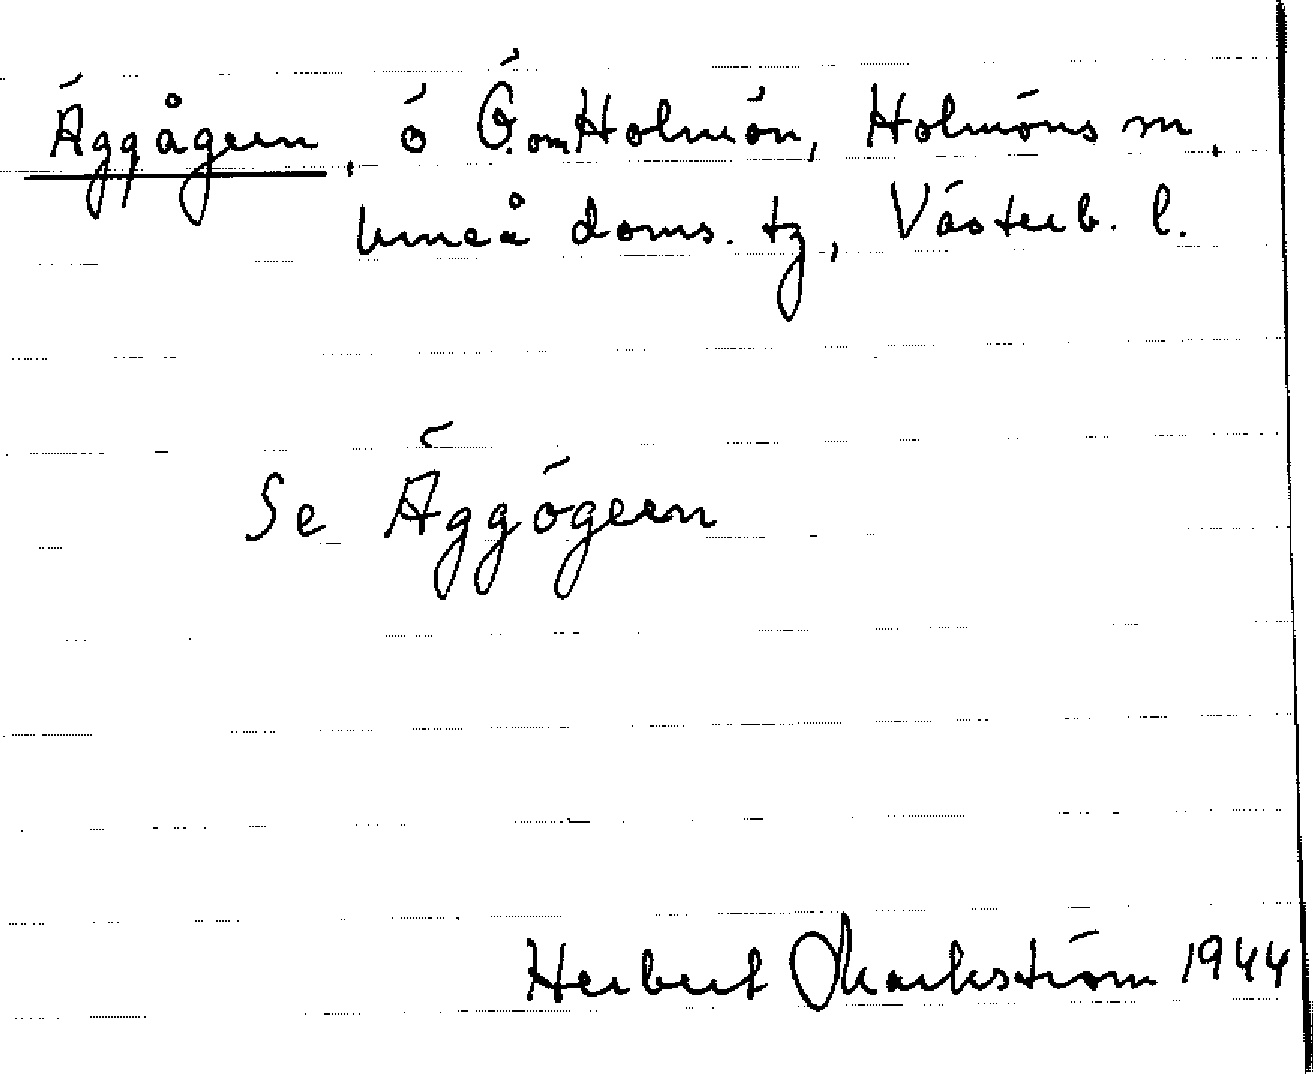 Äggågern, ö Ö.om Holmön, Holmöns sn.
Umeå doms. tg, Västerb. l.
Se Äggögern
Herbert Markström 1944